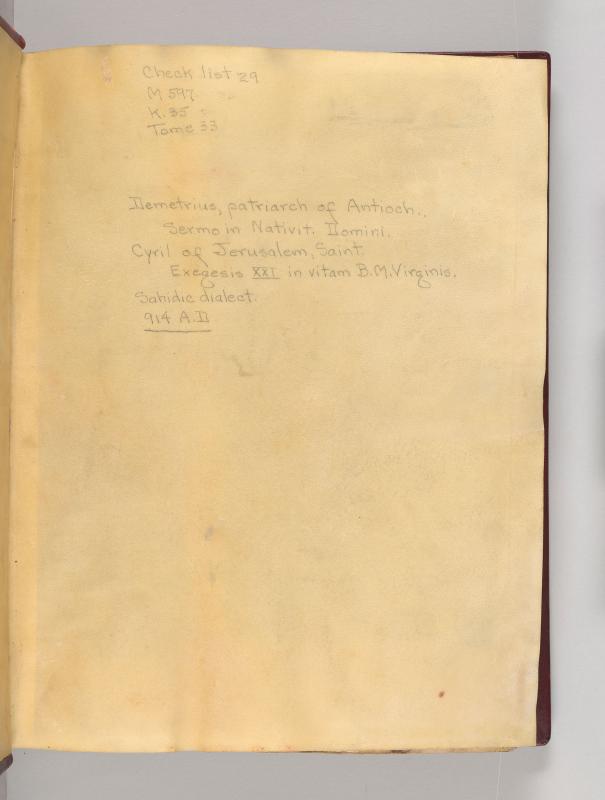 Check list 29
M 597
K. 35
Tome 33
Demetrius, patriarch of Antioch..
Sermo in Nativit. Domini.
Cyril of Jerusalem, Saint.
Exegesis XXI in vitam B.M.Virginis.
Sahidic dialect.
914 A.D